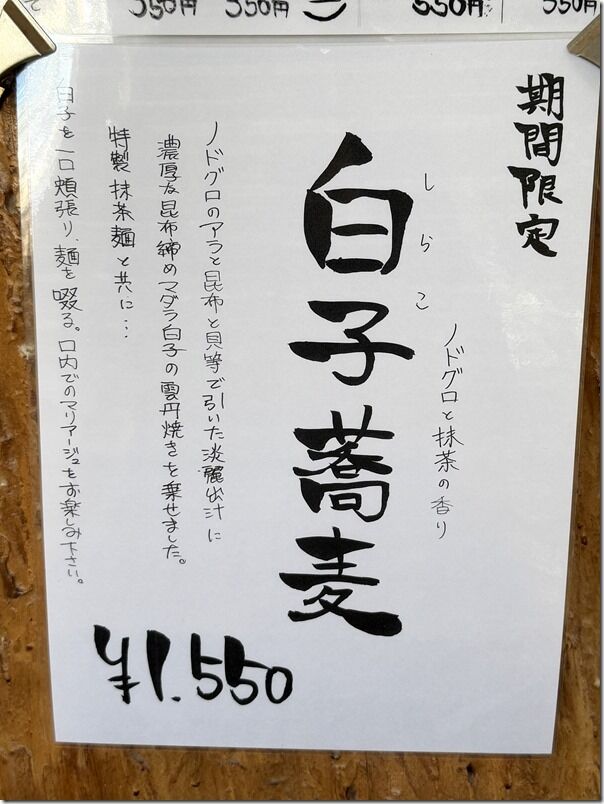 350円 350円 550円 550円
期間限定
ノドグロと抹茶の香り
しらこ
白子蕎麦
ノドグロのアラと昆布と貝等で引いた淡麗出汁に
濃厚な昆布締めマダラ白子の雲丹焼きを乗せました。
特製抹茶麺と共に…
白子を一口頬張り、麺を啜る。口内でのマリアージュをお楽しみ下さい。
¥1.550